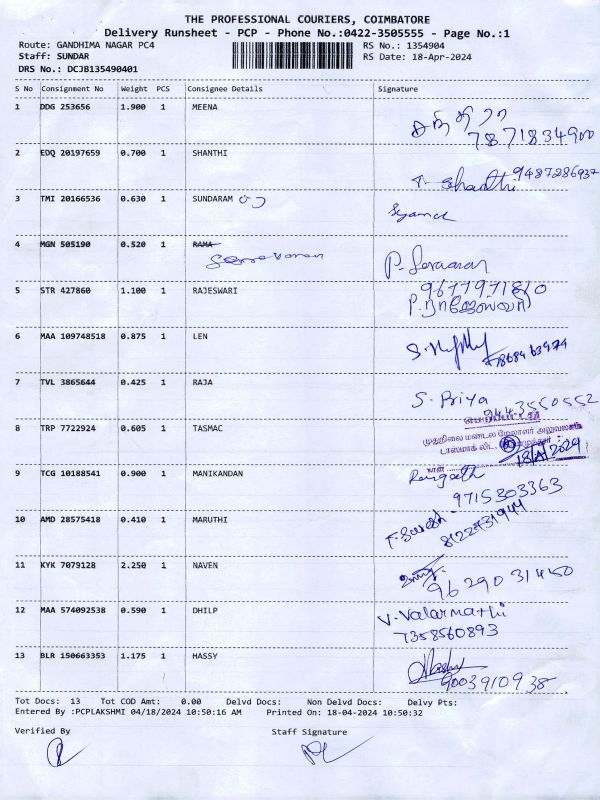 THE PROFESSIONAL COURIERS, COIMBATORE
Delivery Runsheet - PCP - Phone No.:0422-3505555 - Page No.:1
Route: GANDHIMA NAGAR PC4 RS No.: 1354904
Staff: SUNDAR RS Date: 18-Apr-2024
DRS No.: DCJB135490401
S No Consignment No Weight PCS Consignee Details Signature
1 DDG 253656 1.900 1 MEENA
7871834900
2 EDQ 20197659 0.700 1 SHANTHI
T. Shanthi 9487286937
3 TMI 20166536 0.630 1 SUNDARAM
4 MGN 505190 0.520 1 RAMA
P. Saravanan
5 STR 427860 1.100 1 RAJESWARI
9677971810
P.ராஜேஸ்வரி
6 MAA 109748518 0.875 1 LEN
7 TVL 3865644 0.425 1 RAJA
S. Priya
9443550552
8 TRP 7722924 0.605 1 TASMAC
முதுநிலை மண்டல மேலாளர் அலுவலகம்
டாஸ்மாக் லிட்.,
நாள் 18/4/2024
9 TCG 10188541 0.900 1 MANIKANDAN
Ranjith
9715303363
10 AMD 28575418 0.410 1 MARUTHI
T. Suresh
8122731944
11 KYK 7079128 2.250 1 NAVEN
9629031450
12 MAA 574092538 0.590 1 DHILP
V. Valarmathi
7358560893
13 BLR 150663353 1.175 1 HASSY
9003910938
Tot Docs: 13 Tot COD Amt: 0.00 Delvd Docs: Non Delvd Docs: Delvy Pts:
Entered By :PCPLAKSHMI 04/18/2024 10:50:16 AM Printed On: 18-04-2024 10:50:32
Verified By Staff Signature